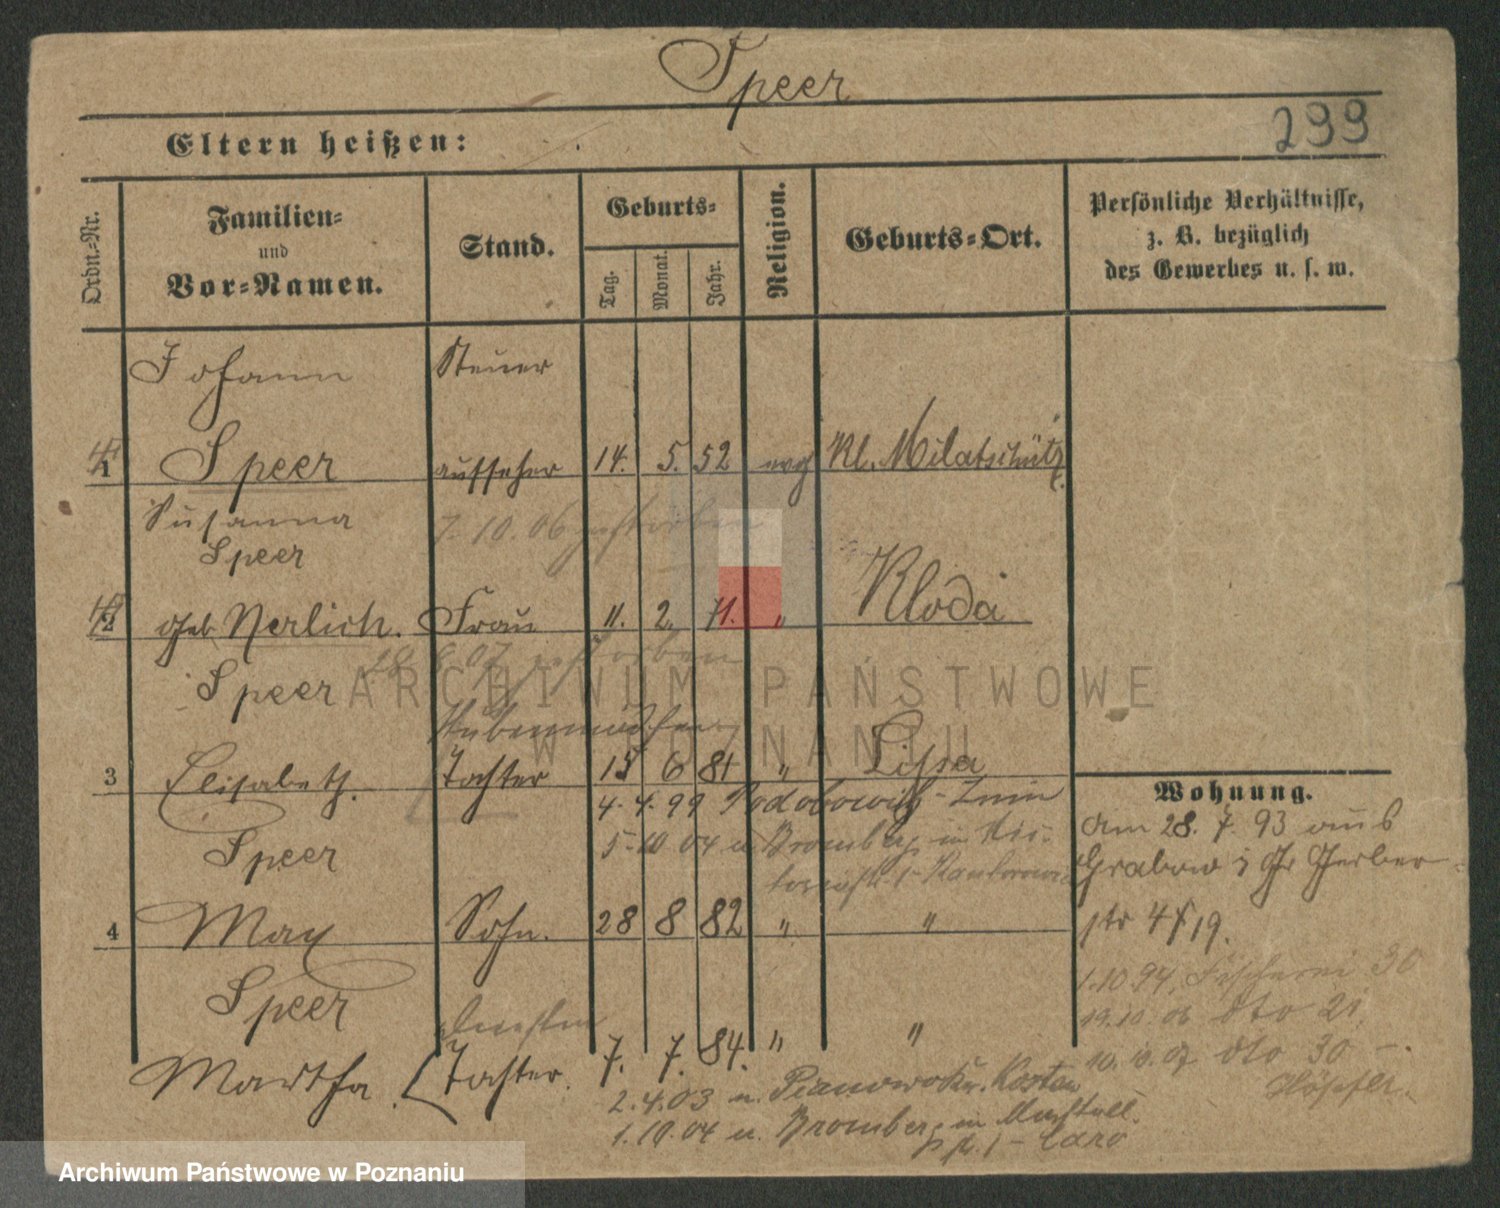 Speer
299
Eltern heißen:
Ordn.-Nr.
Familien-
und
Vor-Namen.
Stand.
Geburts-
Tag.
Monat.
Jahr.
Religion.
Geburts-Ort.
Persönliche Verhältnisse,
z. B. bezüglich
des Gewerbes u. s. w.
Johann Steuer
1 Speer aufseher 14. 5. 52 evg Kl. Milatschütz
Susanna 7.10.06 gestorben
Speer
2 geb Nerlich. Frau 11. 2. 71. " Kloda
Speer 07 gestorben
Stubenmädchen
3 Elisabeth. Tochter 15 6 81 " Lissa
4.4.99 Znin
Speer 5.10 04 n Bromberg
4 Max Sohn. 28 8 82 " "
Speer
Martha. Tochter. 7. 7. 84. " "
2.4.03 n.
1.10.04 n. Bromberg
Wohnung.
Am 28. 7. 93 aus
Grabow Gr Gerber-
str 19.
1.10 94, Fischerei 30
19.10.06 dto 21
10.10.07 dto 30
ARCHIWUM PAŃSTWOWE
W POZNANIU
Archiwum Państwowe w Poznaniu